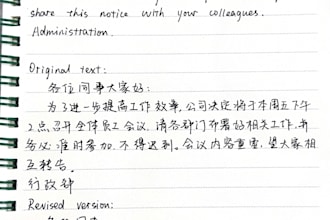 share this notice with your colleagues.
Administration.
Original text:
各位同事大家好:
为了进一步提高工作效率,公司决定将于本周五下午
2点召开全体员工会议.请各部门布置好相关工作,并
务必准时参加,不得迟到。会议内容重要,望大家相
互转告。
行政部
Revised version: